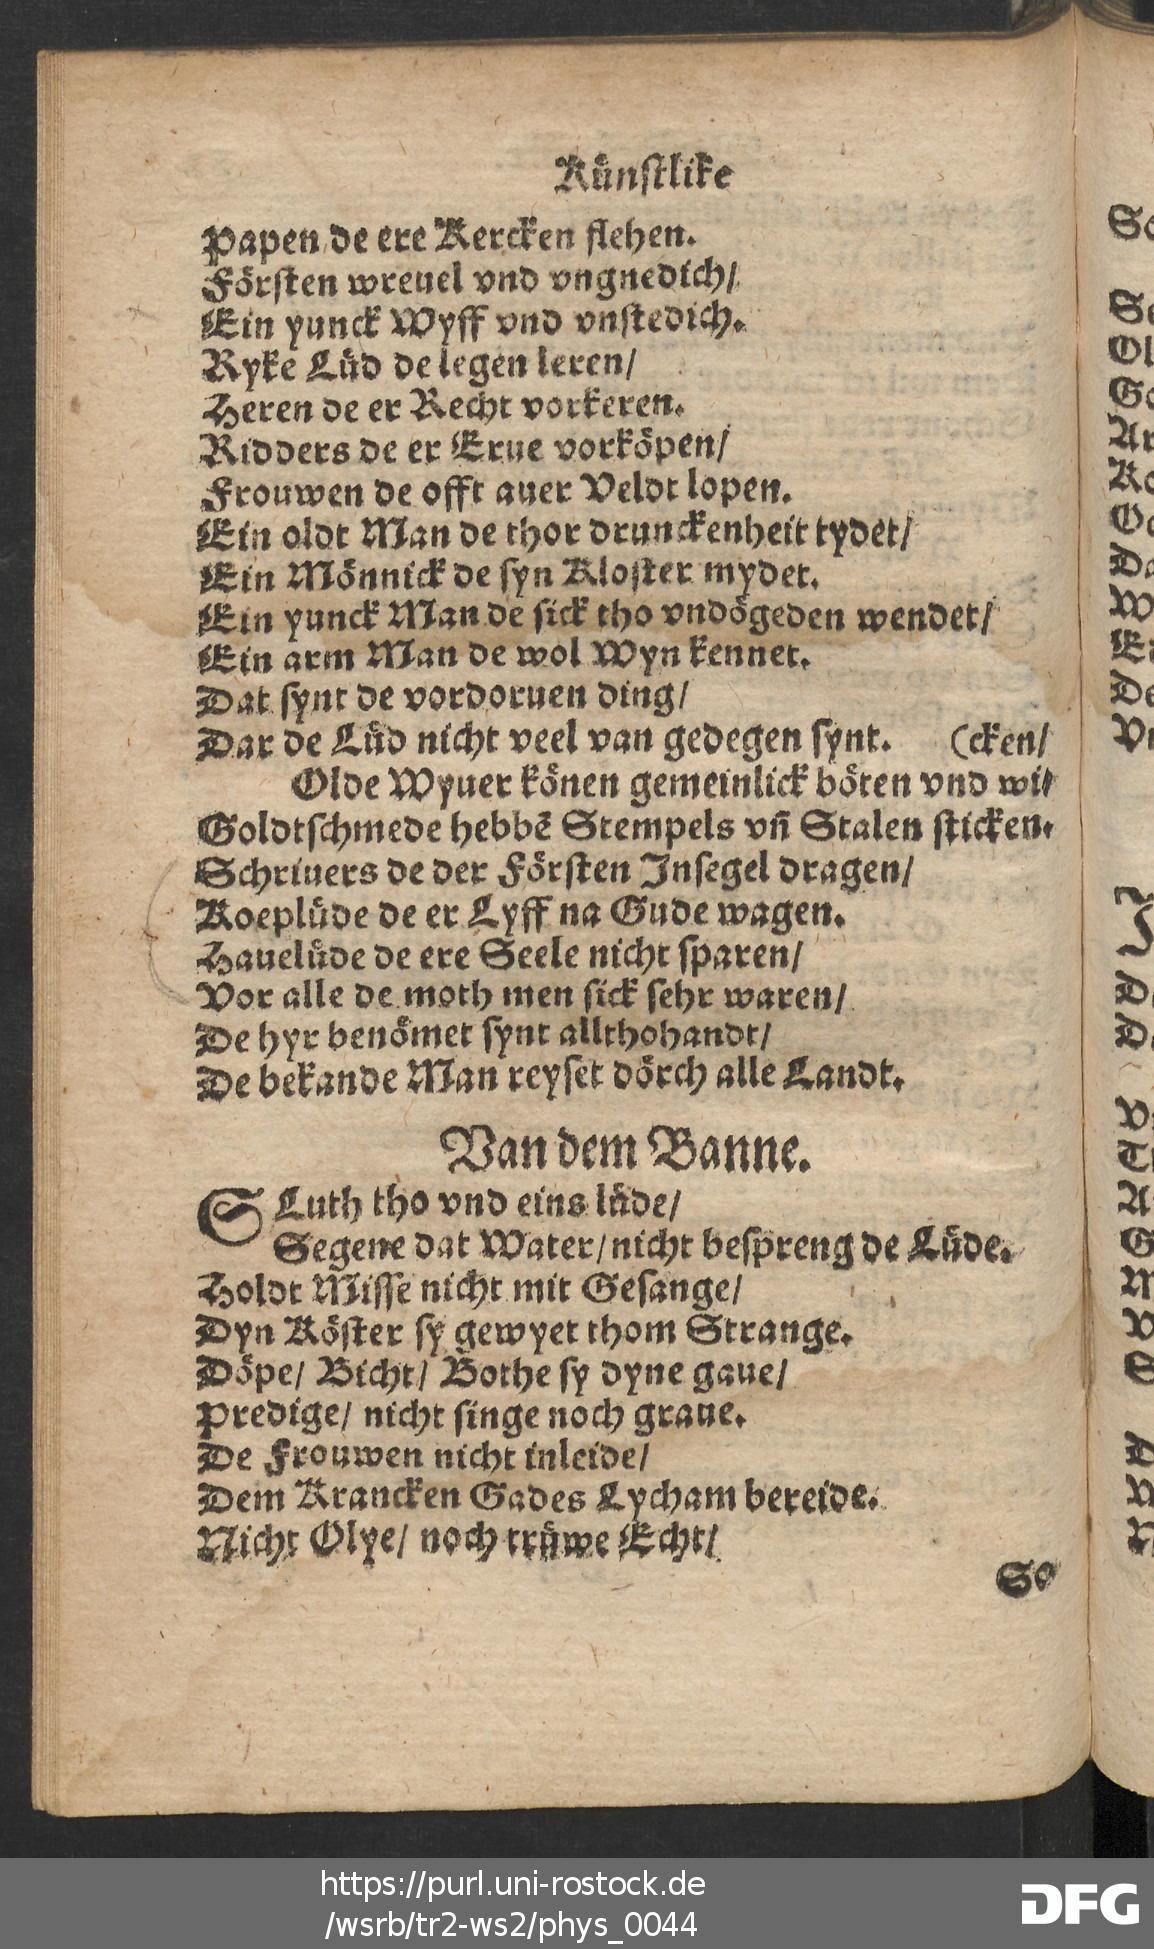 Künstlike
Papen de ere Kercken flehen.
Försten wreuel vnd vngnedich/
Ein yunck Wyff vnd vnstedich.
Ryke Lüd de legen leren/
Heren de er Recht vorkeren.
Ridders de er Erue vorköpen/
Frouwen de offt auer Veldt lopen.
Ein oldt Man de thor drunckenheit tydet/
Ein Mönnick de syn Kloster mydet.
Ein yunck Man de sick tho vndögeden wendet/
Ein arm Man de wol Wyn kennet.
Dat synt de vordoruen ding/
Dar de Lüd nicht veel van gedegen synt. (cken/
Olde Wyuer können gemeinlick böten vnd wi/
Goldtschmede hebbē Stempels vn̄ Stalen sticken.
Schriuers de der Försten Insegel dragen/
Koeplüde de er Lyff na Gude wagen.
Hauelüde de ere Seele nicht sparen/
Vor alle de moth men sick sehr waren/
De hyr benömet synt allthohandt/
De bekande Man reyset dörch alle Landt.
Van dem Banne.
SLuth tho vnd eins lüde/
Segene dat Water/nicht bespreng de Lüde.
Holdt Misse nicht mit Gesange/
Dyn Köster sy gewyet thom Strange.
Döpe/ Bicht/ Bothe sy dyne gaue/
Predige/ nicht singe noch graue.
De Frouwen nicht inleide/
Dem Krancken Gades Lycham bereide.
Nicht Olye/ noch trüwe Echt/
So
https://purl.uni-rostock.de
/wsrb/tr2-ws2/phys_0044
DFG